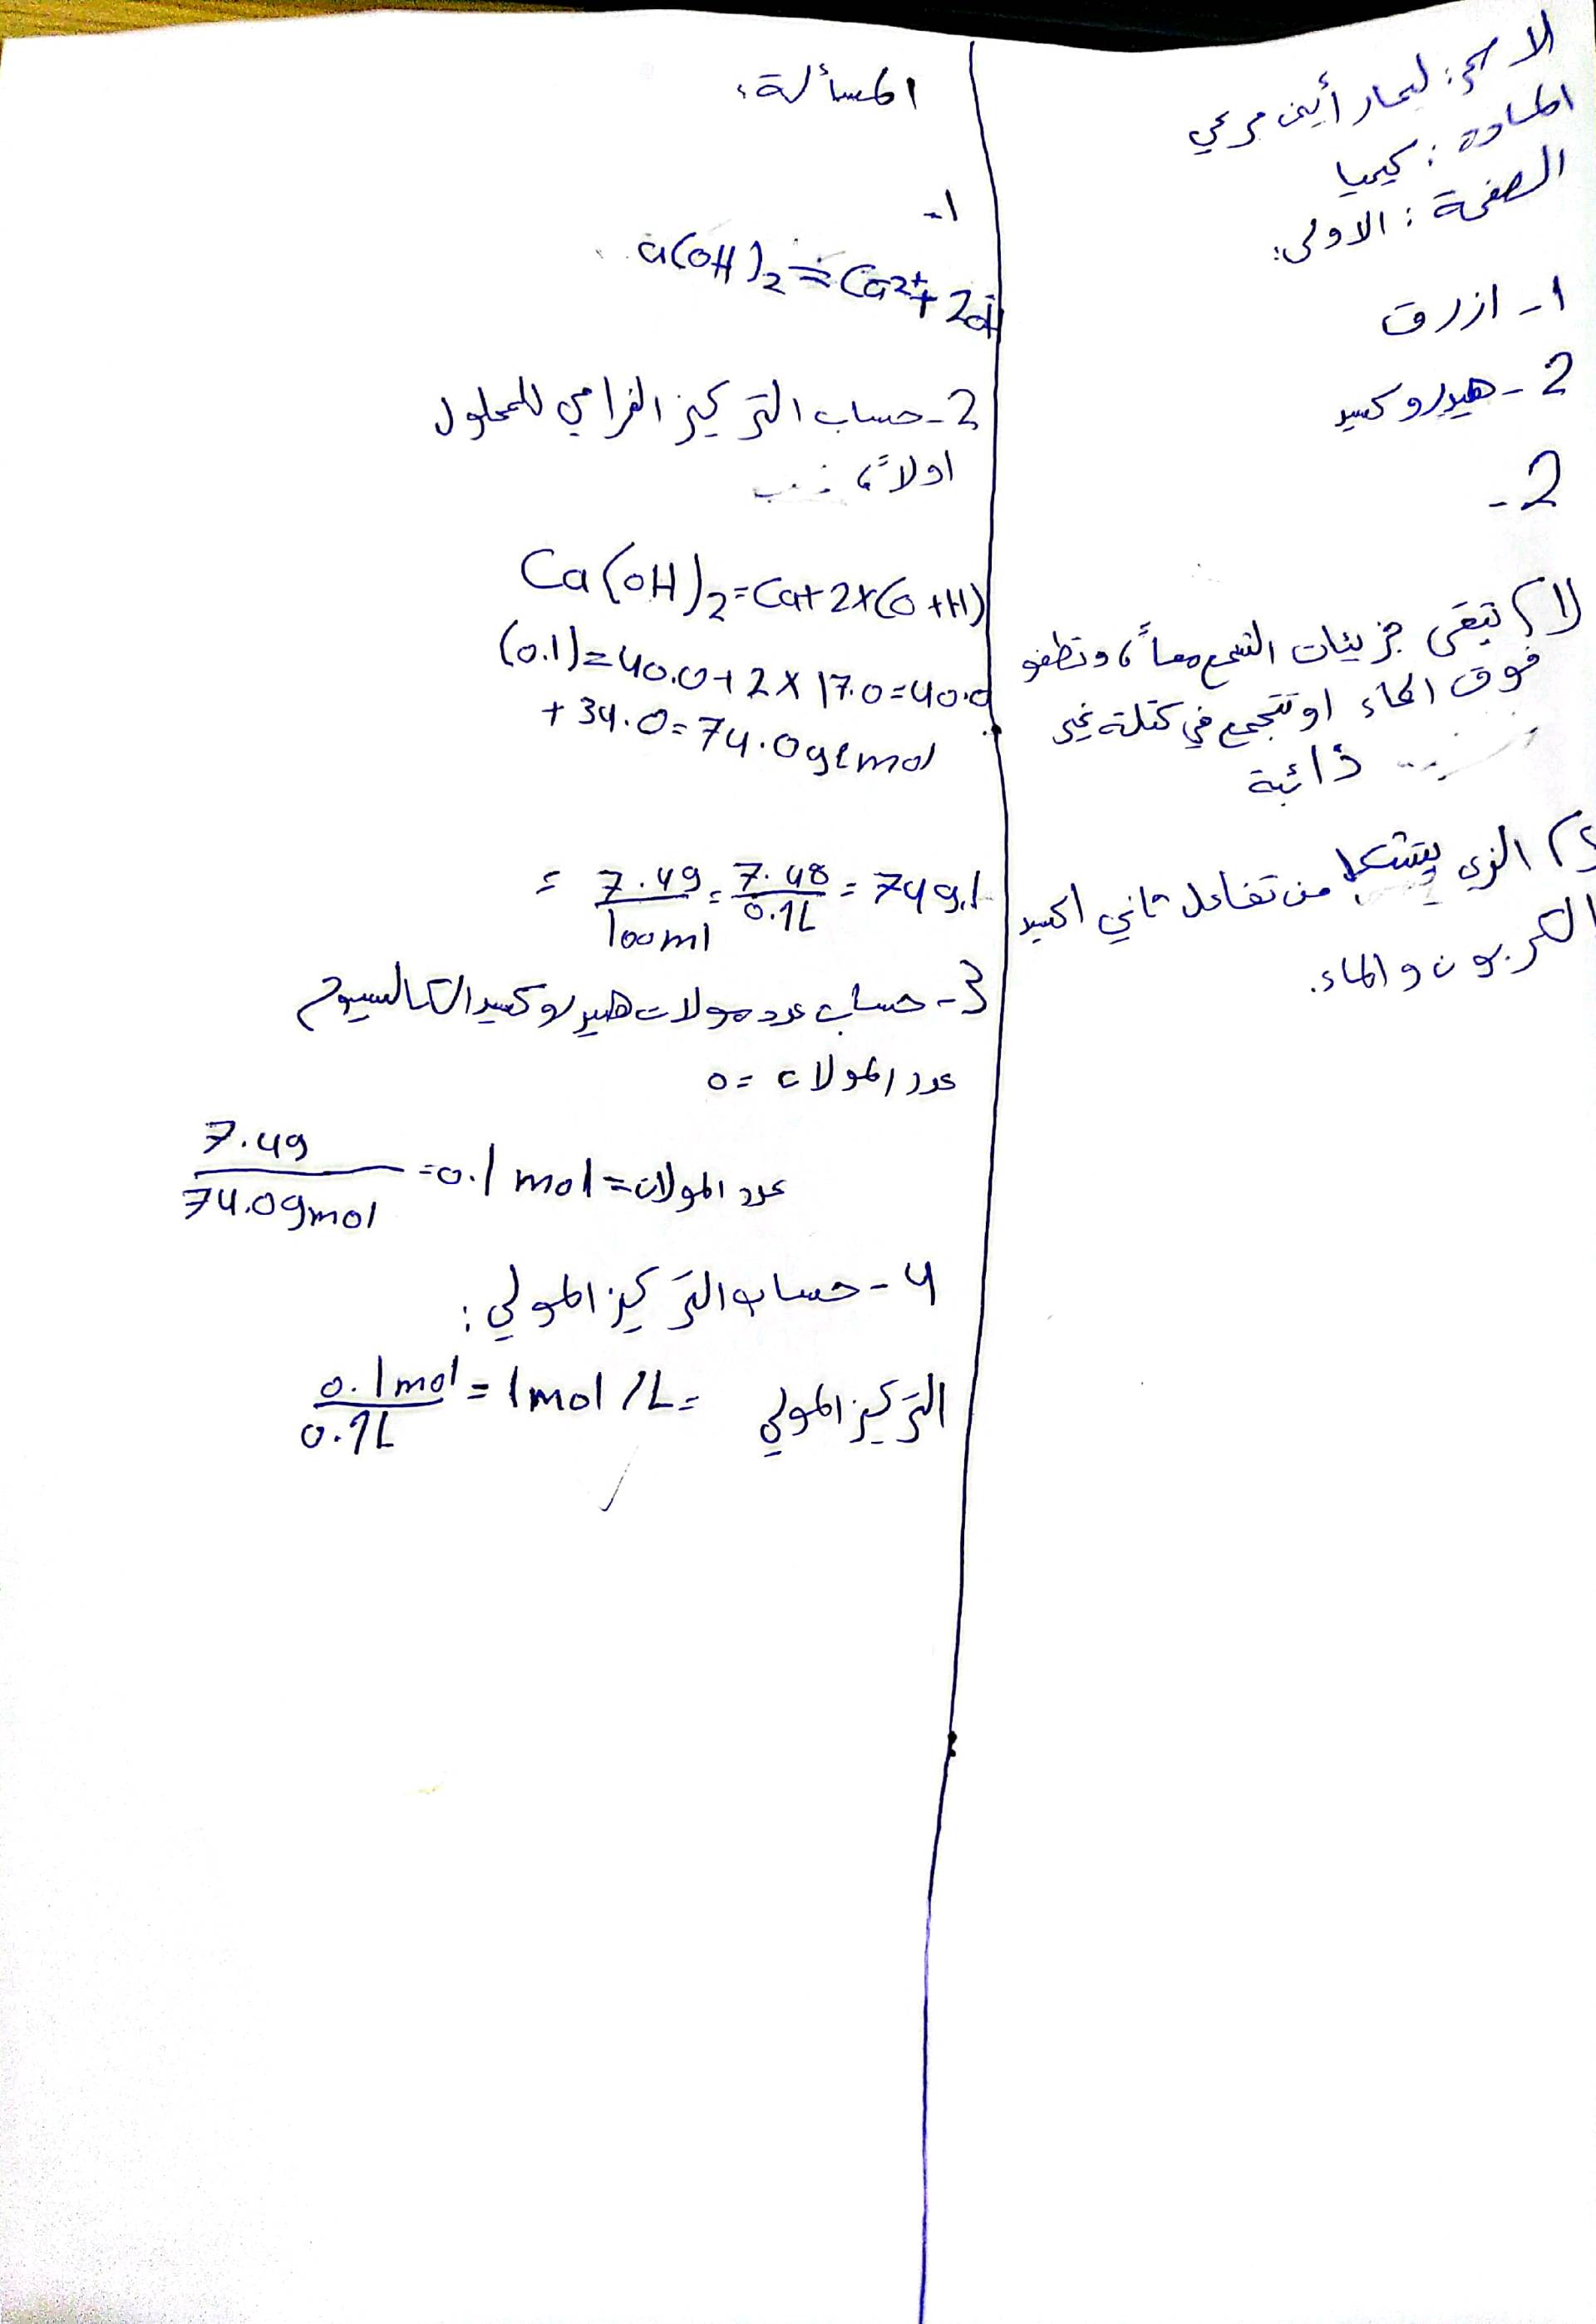 الاسم: ليمار أيمن مرعي
المادة: كيميا
الصفحة: الاولى:
1- ازرق
2- هيدروكسيد
2-
1) تبقى جزيئات الشمع معاً، وتطفو
فوق الماء او تتجمع في كتلة غير
ذائبة
2) الذي يتشكل من تفاعل ثاني اكسيد
الكربون والماء.
المسألة:
1-
Ca(OH)2 ⇌ Ca2+ + 2OH
2- حساب التركيز الغرامي للمحلول
اولاً،
Ca(OH)2=Ca+2×(O+H)
(0.1)=40.0+2×17.0=40.0
+34.0=74.0g/mol
= 7.4g/100ml = 7.4g/0.1L = 74g.l
3- حساب عدد مولات هيدروكسيد الكالسيوم
عدد المولات =0
عدد المولات = 7.4g/74.0gmol =0.1 mol
4- حساب التركيز المولي:
التركيز المولي = 0.1mol/0.1L = 1mol/L